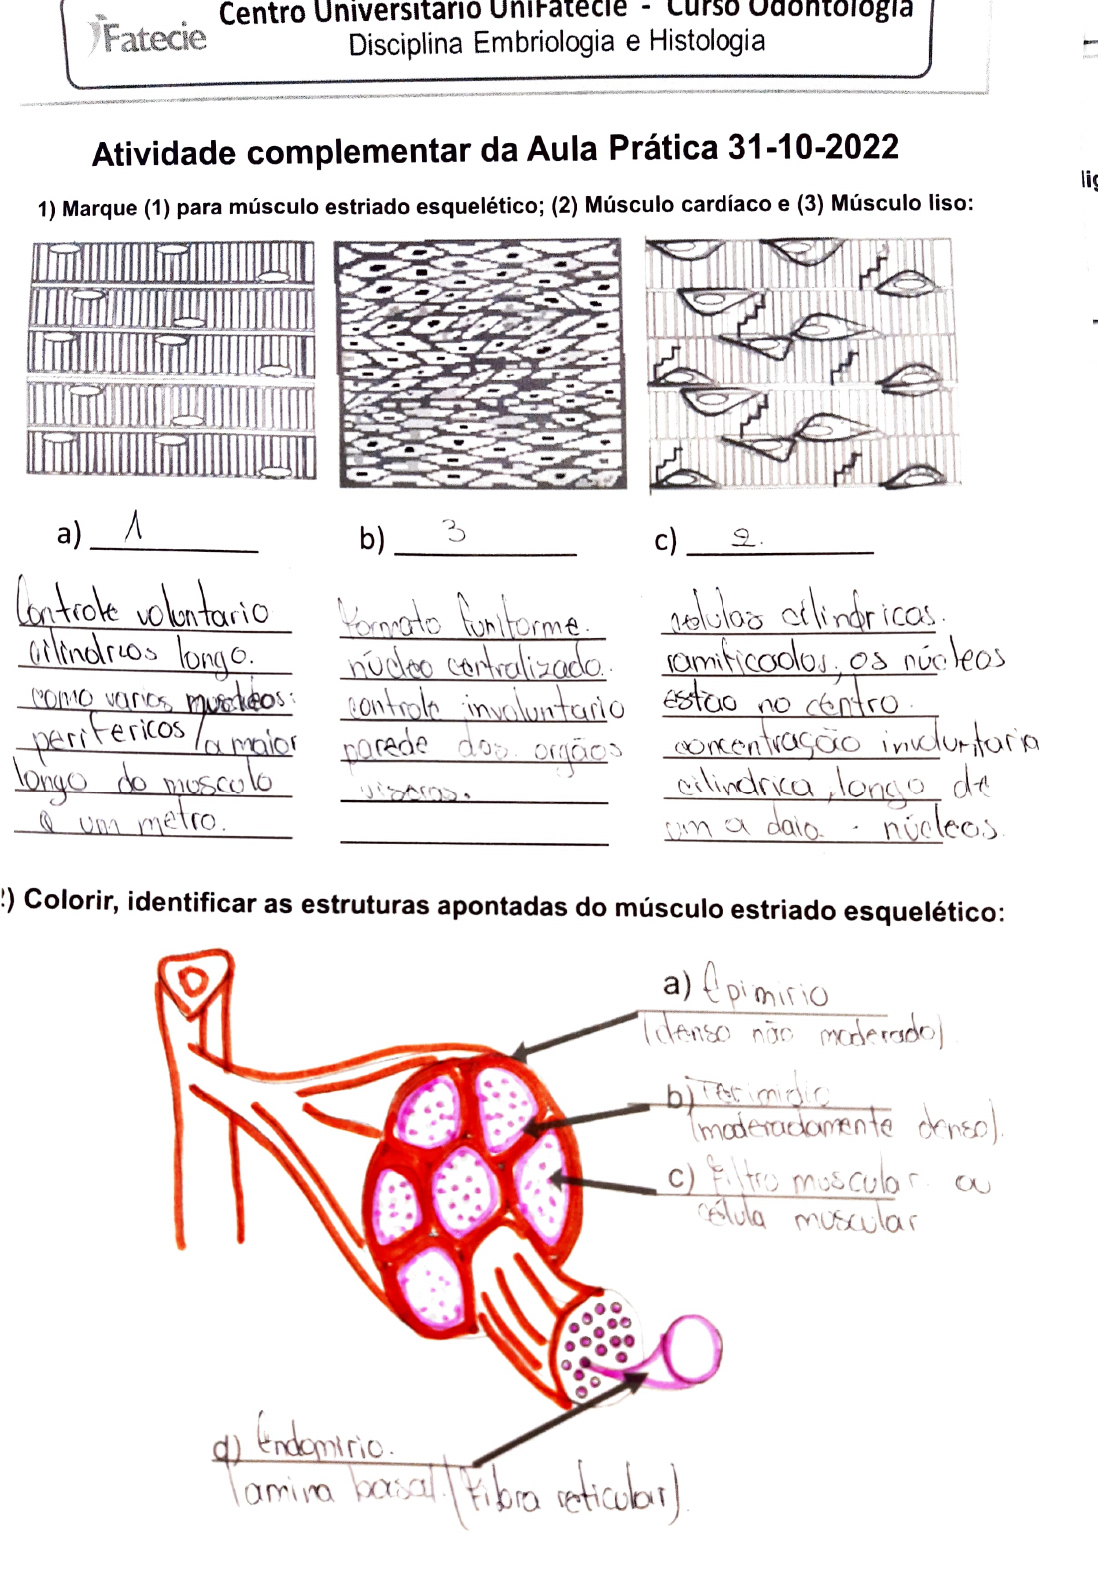 Centro Universitário UniFatecie - Curso Odontologia
Fatecie
Disciplina Embriologia e Histologia
Atividade complementar da Aula Prática 31-10-2022
lig
1) Marque (1) para músculo estriado esquelético; (2) Músculo cardíaco e (3) Músculo liso:
a) 1
b) 3
c) 2.
Controle voluntario
cilindricos longo.
como varios nucleos:
perifericos / a maior
longo do musculo
é um metro.
formato funiforme.
núcleo centralizado.
controle involuntario
parede dos orgãos
viseras.
celulas cilindricas.
ramificados, os núcleos
estão no centro.
concentração involuntaria
cilindrica, longo de
um a dois. núcleos.
2) Colorir, identificar as estruturas apontadas do músculo estriado esquelético:
a) Epimirio
(denso não moderado)
b) Perimidio
(moderadamente denso).
c) Filtro muscular ou
célula muscular
d) Endomirio.
lamina basal. (Fibra reticular).